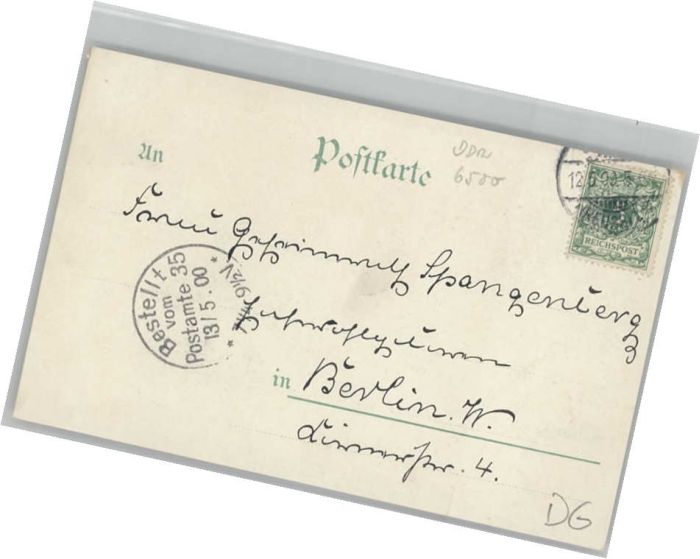 An
Postkarte
DDR
6500
12.5.
REICHSPOST
Frau Geheimrath Spangenberg
Bestellt
vom
Postamte 35
13/5.00
9½V.
Hochwohlgeboren
in Berlin. W.
4.
DG